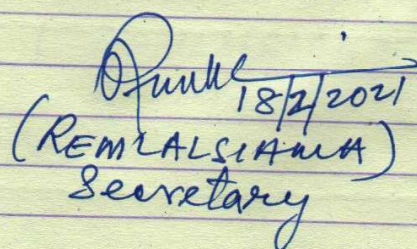 18/2/2021
(REMLALSIAMA)
Secretary